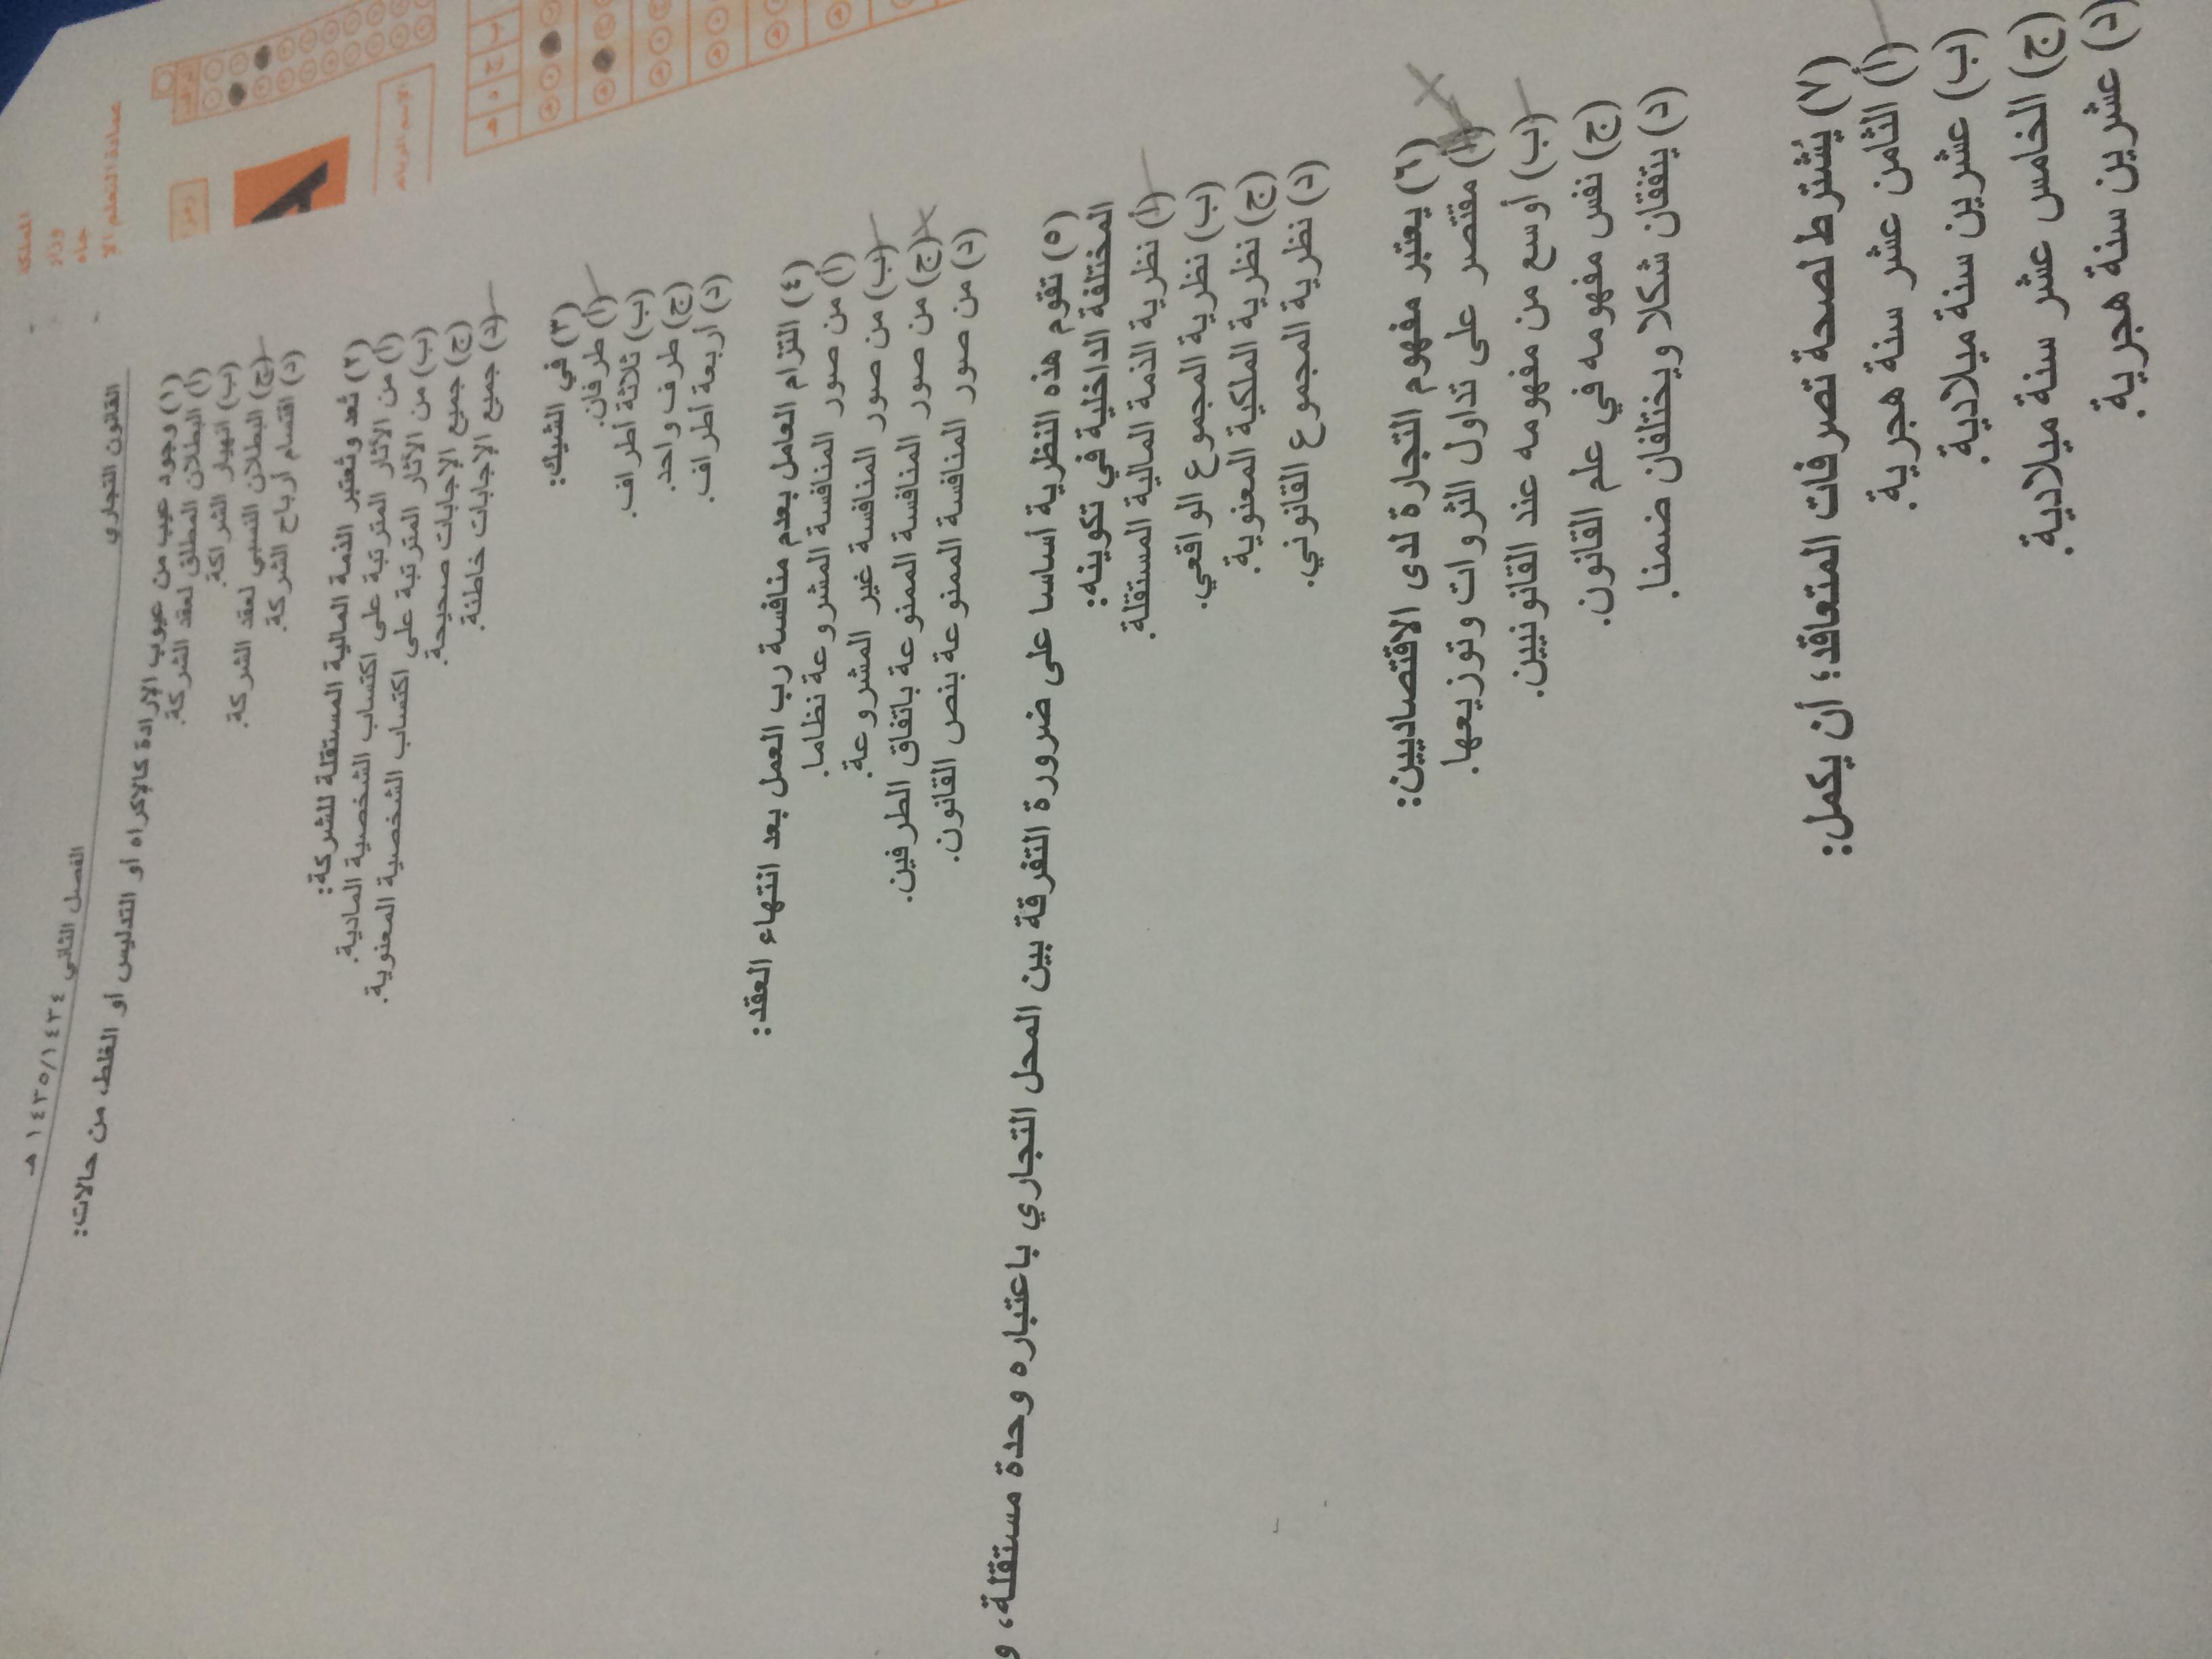 القانون التجاري
الفصل الثاني ١٤٣٥/١٤٣٤ هـ
(١) وجود عيب من عيوب الإرادة كالإكراه أو التدليس أو الغلط، من حالات:
(أ) البطلان المطلق لعقد الشركة.
(ب) انهيار الشراكة.
(ج) البطلان النسبي لعقد الشركة.
(د) اقتسام أرباح الشركة.
(٢) تُعد وتُعتبر الذمة المالية المستقلة للشركة:
(أ) من الآثار المترتبة على اكتساب الشخصية المادية.
(ب) من الآثار المترتبة على اكتساب الشخصية المعنوية.
(ج) جميع الإجابات صحيحة.
(د) جميع الإجابات خاطئة.
(٣) في الشيك:
(أ) طرفان.
(ب) ثلاثة أطراف.
(ج) طرف واحد.
(د) أربعة أطراف.
(٤) التزام العامل بعدم منافسة رب العمل بعد انتهاء العقد:
(أ) من صور المنافسة المشروعة نظاما.
(ب) من صور المنافسة غير المشروعة.
(ج) من صور المنافسة الممنوعة باتفاق الطرفين.
(د) من صور المنافسة الممنوعة بنص القانون.
(٥) تقوم هذه النظرية أساسا على ضرورة التفرقة بين المحل التجاري باعتباره وحدة مستقلة، و
المختلفة الداخلية في تكوينه:
(أ) نظرية الذمة المالية المستقلة.
(ب) نظرية المجموع الواقعي.
(ج) نظرية الملكية المعنوية.
(د) نظرية المجموع القانوني.
(٦) يعتبر مفهوم التجارة لدى الاقتصاديين:
(أ) مقتصر على تداول الثروات وتوزيعها.
(ب) أوسع من مفهومه عند القانونيين.
(ج) نفس مفهومه في علم القانون.
(د) يتفقان شكلا ويختلفان ضمنا.
(٧) يُشترط لصحة تصرفات المتعاقد؛ أن يكمل:
(أ) الثامن عشر سنة هجرية.
(ب) عشرين سنة ميلادية.
(ج) الخامس عشر سنة ميلادية.
(د) عشرين سنة هجرية.
عمادة التعلم الا
A